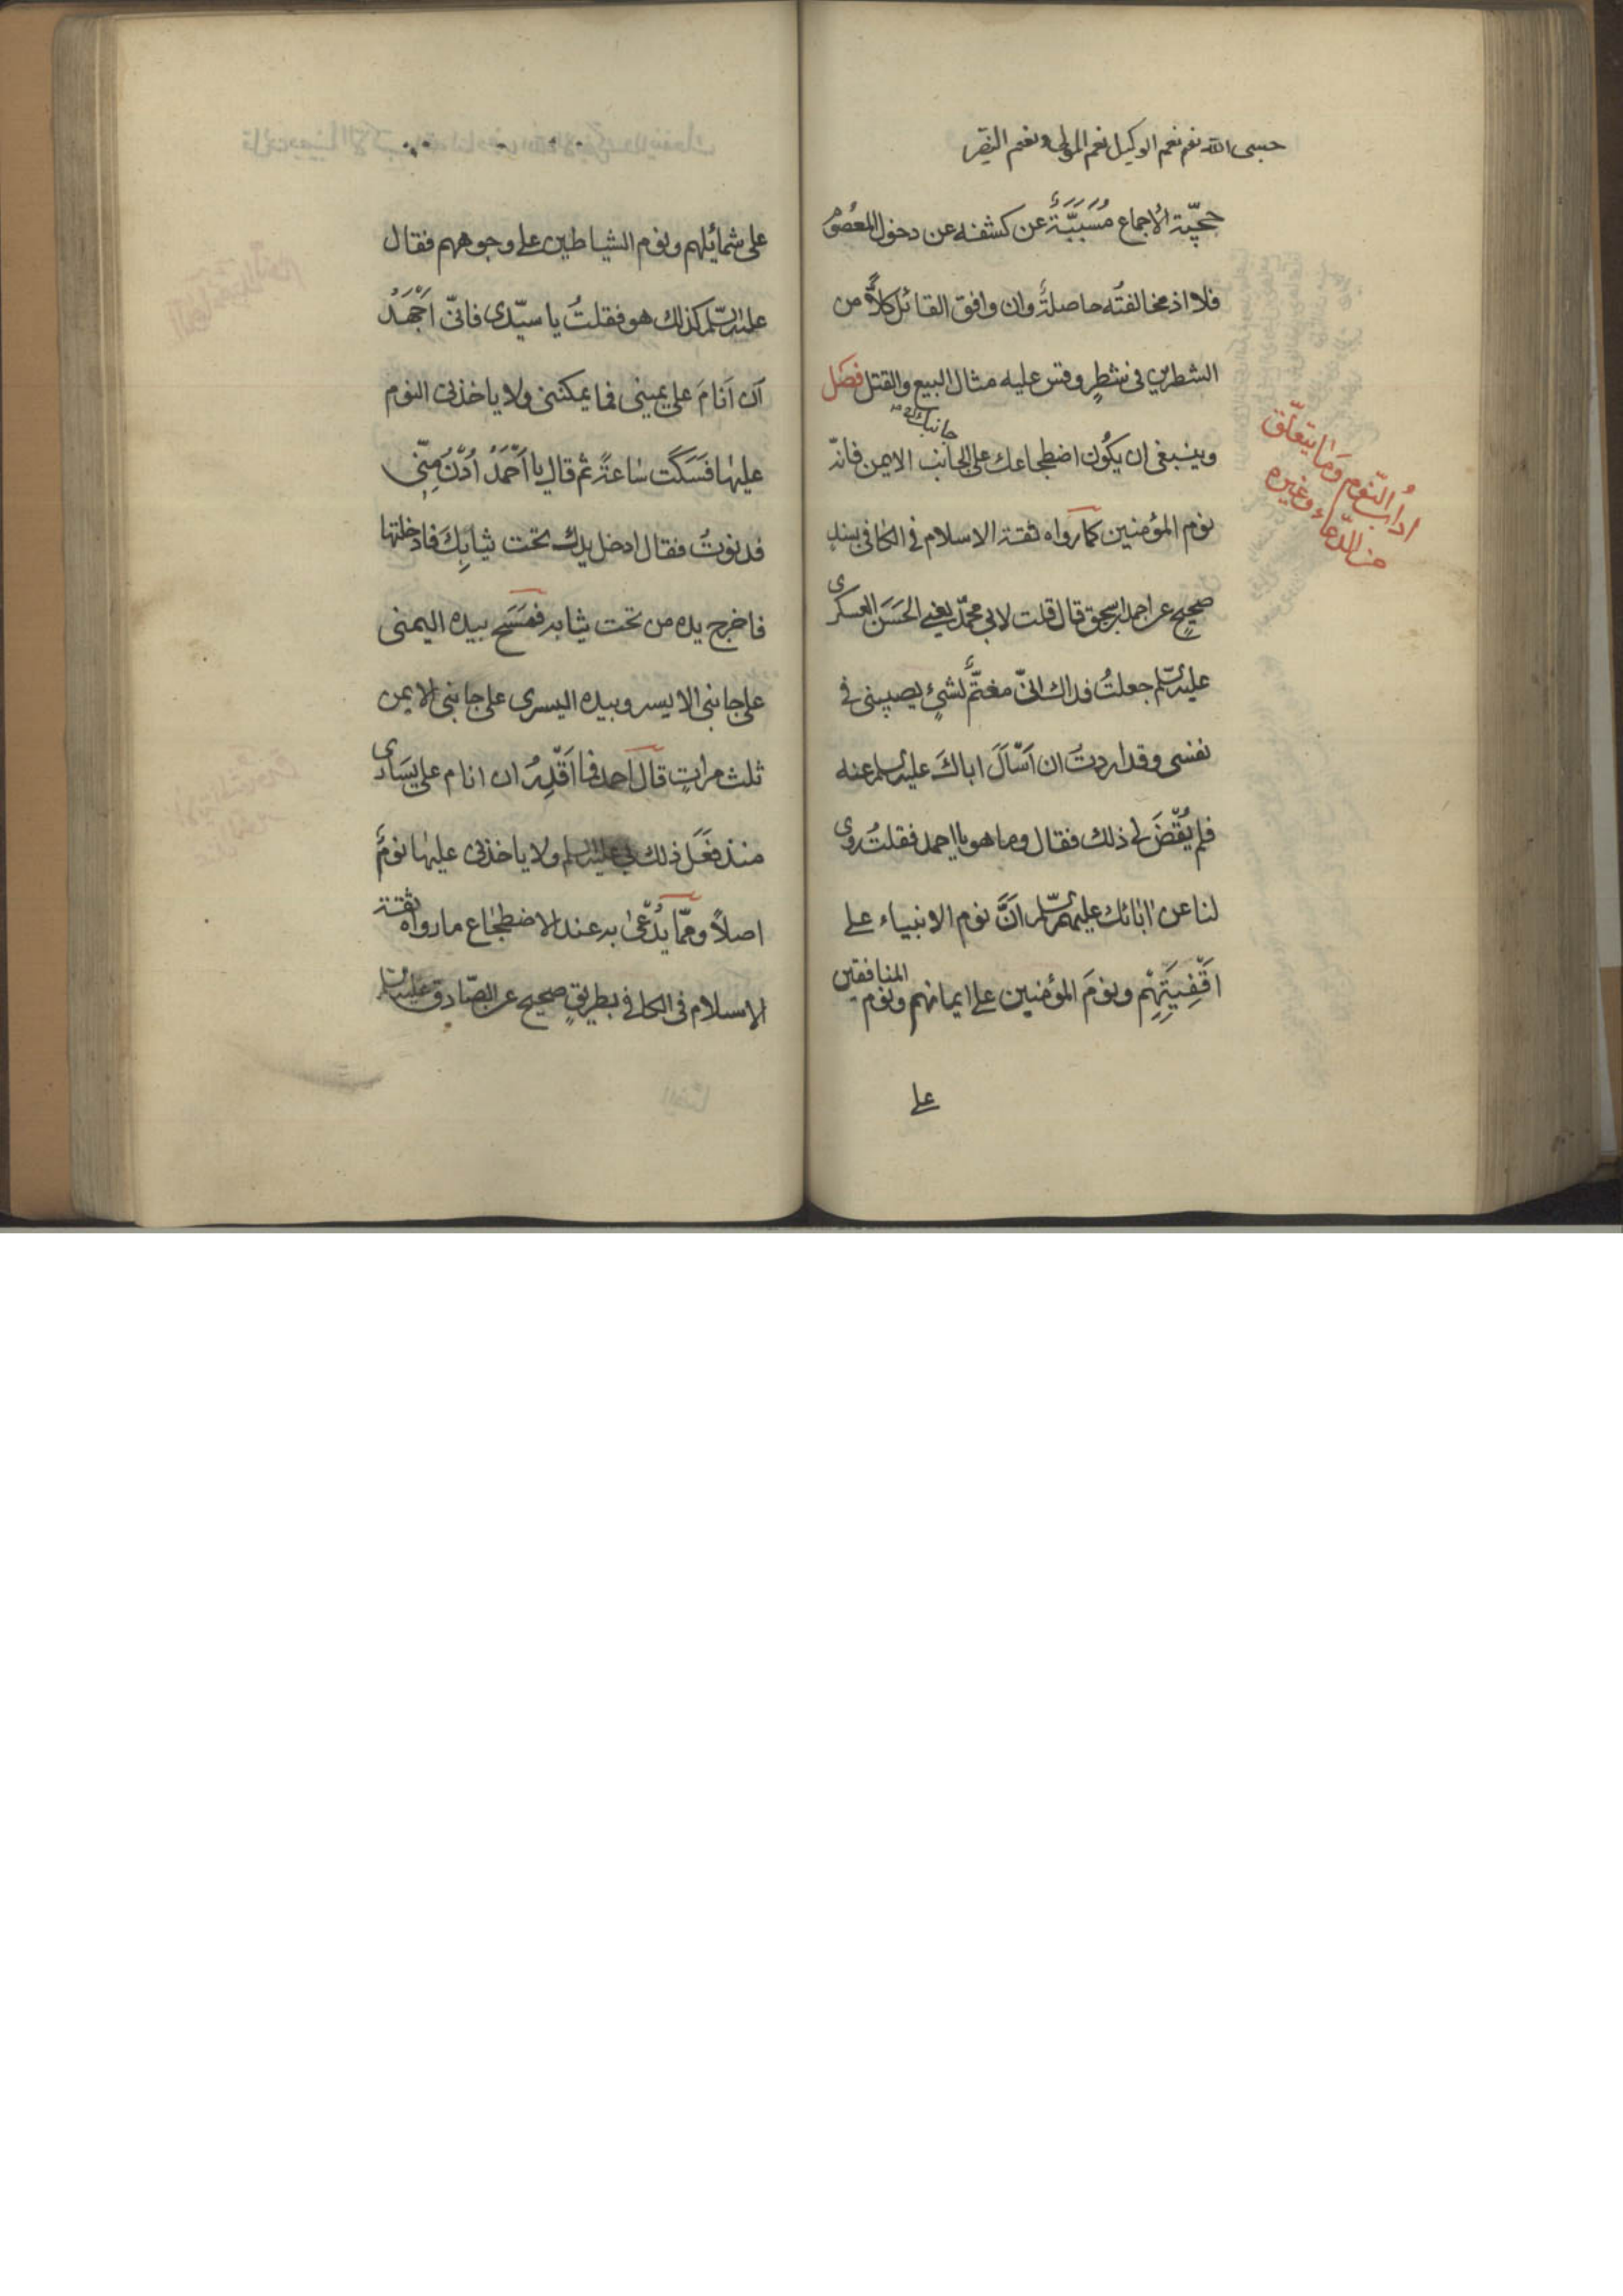 حسبى الله نعم نعم الوكيل نعم المولى ونعم النصير
حجيّة الاجماع مُسَبَبَّةٌ عن كشفه عن دخول المعصوم
فلا اذ مخالفتُه حاصلةٌ وان وافق القائل كلاًّ من
الشطرين فى شطرٍ وقس عليه مثال البيع والقتل فصَل
وينبغى ان يكُون اضطجاعك على الجانب الايمن فانّه
جانبك
نوم المؤمنين كما رواه ثقة الاسلام فى الكافى بسندٍ
صحيحٍ عن احمد بن اسحق قال قلت لابى محمّد يعنى الحَسَن العسكرى
عليه السّلم جعلتُ فداك انىّ مغتمٌّ لشئٍ يصيبنى فى
نفسى وقد اردتُ ان اَسْاَلَ اباكَ عليه السلم عنه
فلم يُقْضَ لى ذلك فقال وما هو يا احمد فقلتُ روى
لنا عن اٰبائك عليهم السّلم انَّ نوم الانبياء على
اَقْفِيَتِهِمْ ونومَ المؤمنين على ايمانهم ونوم المنافقين
على
ادابُ النّوم ومَا يتعلّق
من الدّعاء وغيره
على شمائلهم ونوم الشياطين على وجوههم فقال
عليه السّلم كذلك هو فقلتُ يا سيّدى فانىّ اَجْهَدُ
اَن اَنامَ على يمينى فما يمكننى ولا ياخذنى النوم
عليها فسَكَت سٰاعةً ثم قال يا اَحْمَدُ اُدْنُ مِنّى
فدنوتُ فقال ادخل يدك تحت ثيابِكَ فادخلتها
فاخرج يده من تحت ثيابه فمَسَح بيده اليمنى
على جانبى الايسر وبيده اليسرى على جانبى الايمن
ثلث مراتٍ قال احمد فما اَقْدِرُ ان انام على يسَارى
منذ فعَل ذلك بى عليه السلم ولا ياخذنى عليهٰا نومٌ
اصلاً وممّا يُدْعىٰ به عند الاضطجٰاع ما رواه ثقة
الاسلام فى الكافى بطريقٍ صحيح عن الصّادق عليه السلم